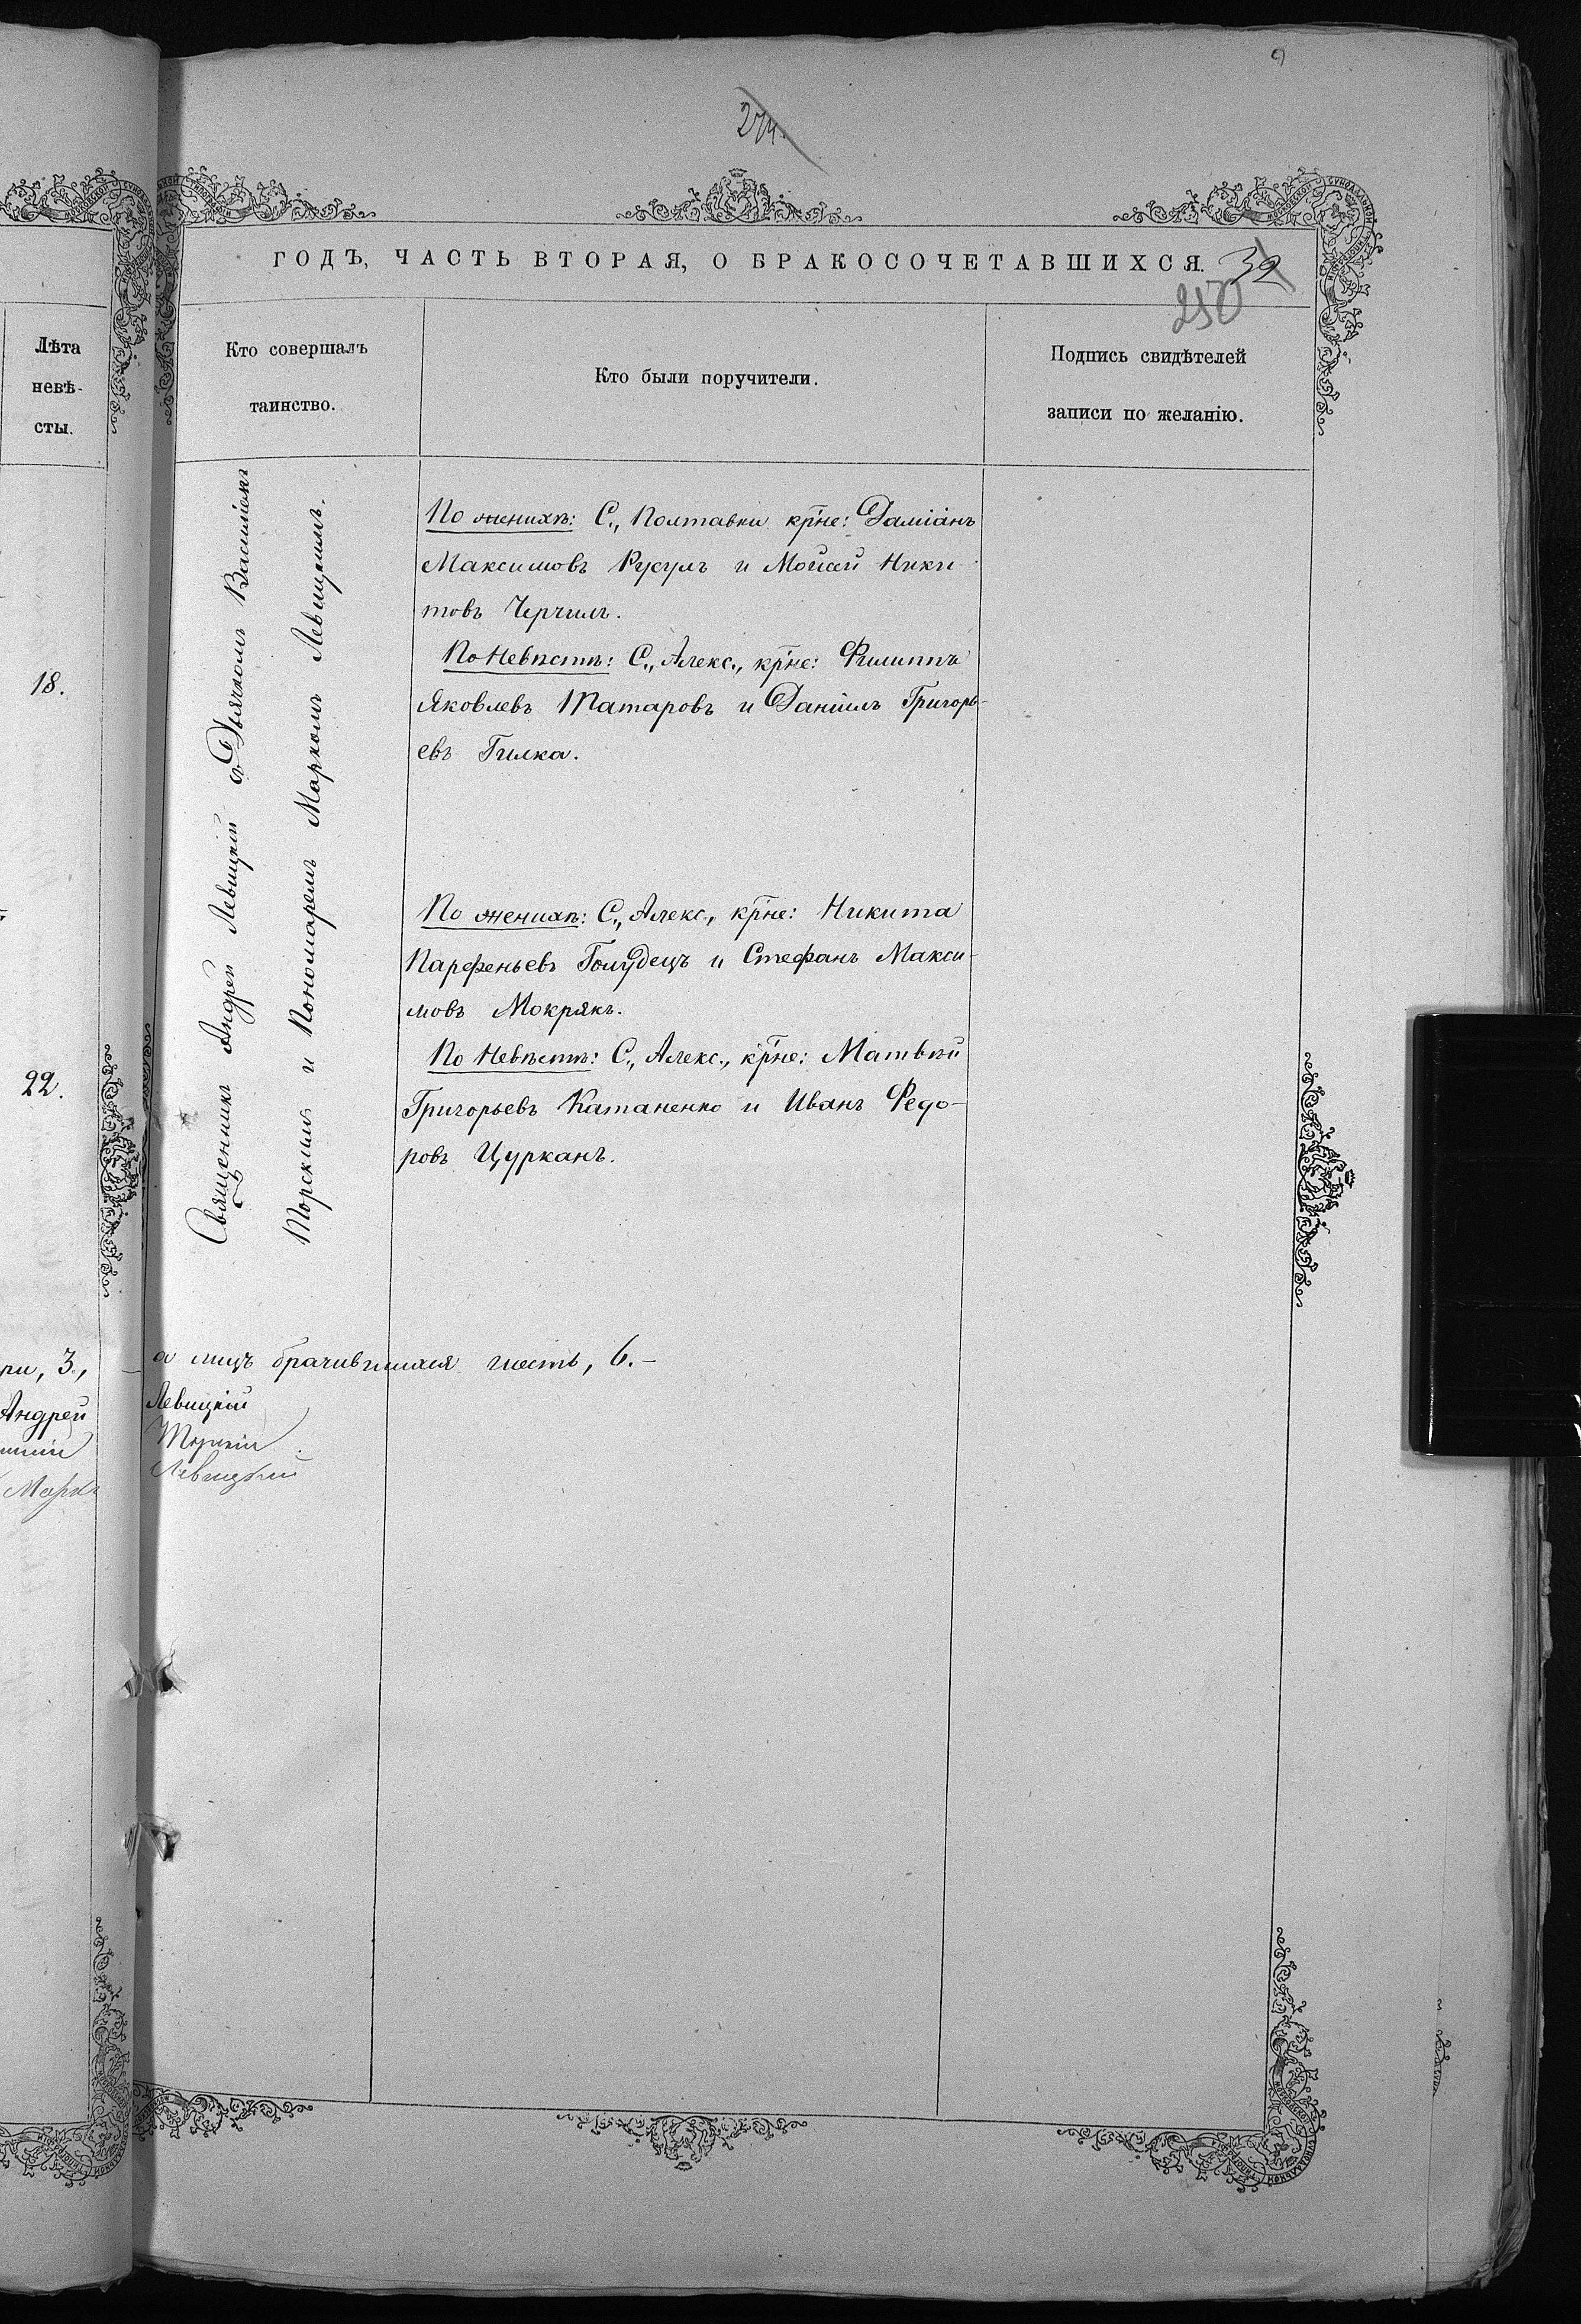 274.
ГОДЪ, ЧАСТЬ ВТОРАЯ, О БРАКОСОЧЕТАВШИХСЯ.
32
250
Лѣта
невѣ-
сты.
Кто совершалъ
таинство.
Кто были поручители.
Подпись свидѣтелей
записи по желанію.
18.
22.
Священникъ Андрей Левицкій съ Дьячкомъ
и Пономаремъ Маркомъ Левицкимъ.
По женихѣ: С., Полтавки кр̃не: Даміанъ
Максимовъ Русулъ и Мойсей Ники
товъ
По Невѣстѣ: С., Алекс., кр̃не: Филиппъ
Яковлевъ Татаровъ и Даніилъ Григорь-
евъ Гилка.
По женихѣ: С., Алекс., кр̃не: Никита
Парфеньевъ Голудецъ и Стефанъ Макси-
мовъ Мокрякъ.
По Невѣстѣ: С., Алекс., кр̃не: Матвѣй
Григорьевъ Катаненко и Иванъ Федо-
ровъ Цурканъ.
ри, 3., а лицъ брачившихся шесть, 6.-
Андрей Левицкій
Маркъ Левицкій